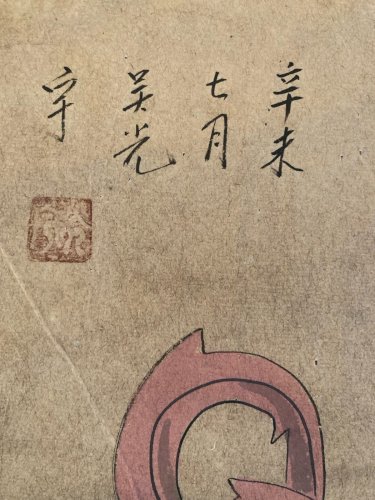 辛未
七月
吴光
宇